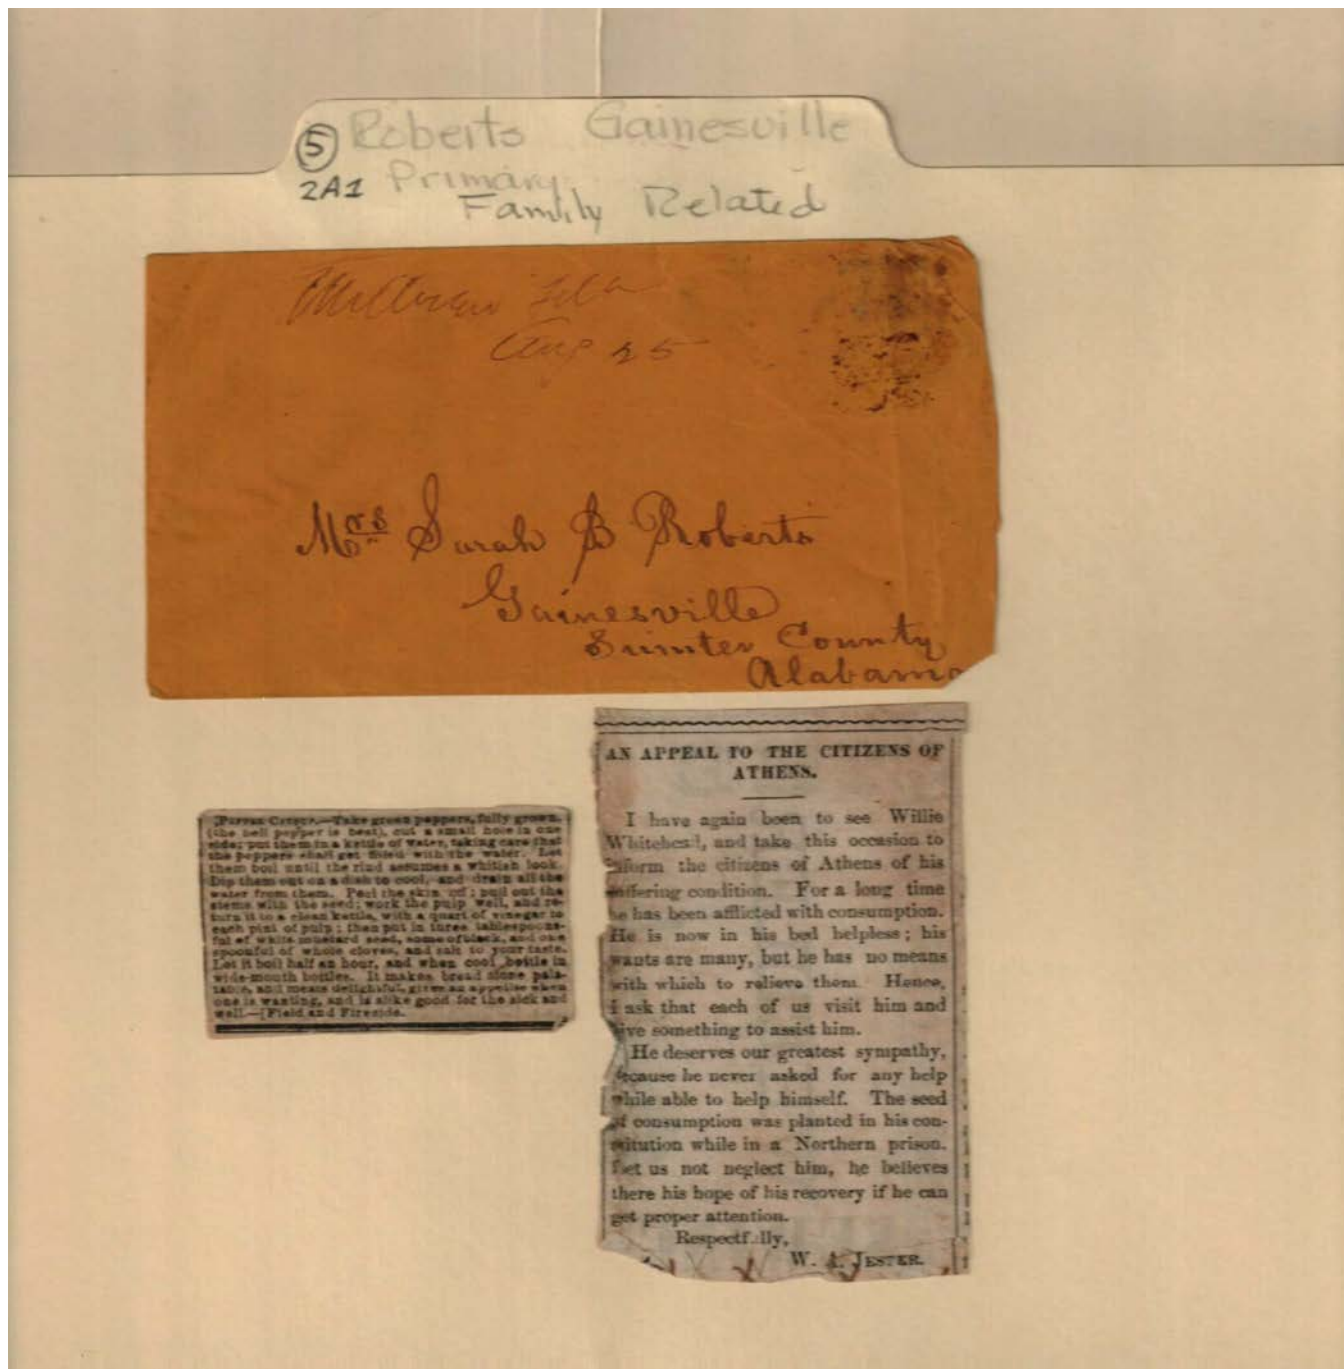 ⑤ Roberts Gainesville
2A1 Primary
Family Related
Aug 25
Mrs Sarah B Roberts
Gainesville
Sumter County
Alabama
Take green peppers, fully grown,
(the bell pepper is best), cut a small hole in one
side; put them in a kettle of water, taking care that
the peppers shall get filled with the water. Let
them boil until the rind assumes a whitish look.
Dip them out on a dish to cool, and drain all the
water from them. Peel the skin off; pull out the
stems with the seed; work the pulp well, and re-
turn it to a clean kettle, with a quart of vinegar to
each pint of pulp; then put in three tablespoons-
ful of white mustard seed, some of black, and one
spoonful of whole cloves, and salt to your taste.
Let it boil half an hour, and when cool bottle in
wide-mouth bottles. It makes bread alone pala-
table, and meats delightful, gives an appetite when
one is wanting, and is alike good for the sick and
well.—[Field and Fireside.
AN APPEAL TO THE CITIZENS OF
ATHENS.
I have again been to see Willie
Whitehead, and take this occasion to
inform the citizens of Athens of his
suffering condition. For a long time
he has been afflicted with consumption.
He is now in his bed helpless; his
wants are many, but he has no means
with which to relieve them. Hence,
I ask that each of us visit him and
give something to assist him.
He deserves our greatest sympathy,
because he never asked for any help
while able to help himself. The seed
of consumption was planted in his con-
stitution while in a Northern prison.
Let us not neglect him, he believes
there his hope of his recovery if he can
get proper attention.
Respectfully,
W. A. JESTER.